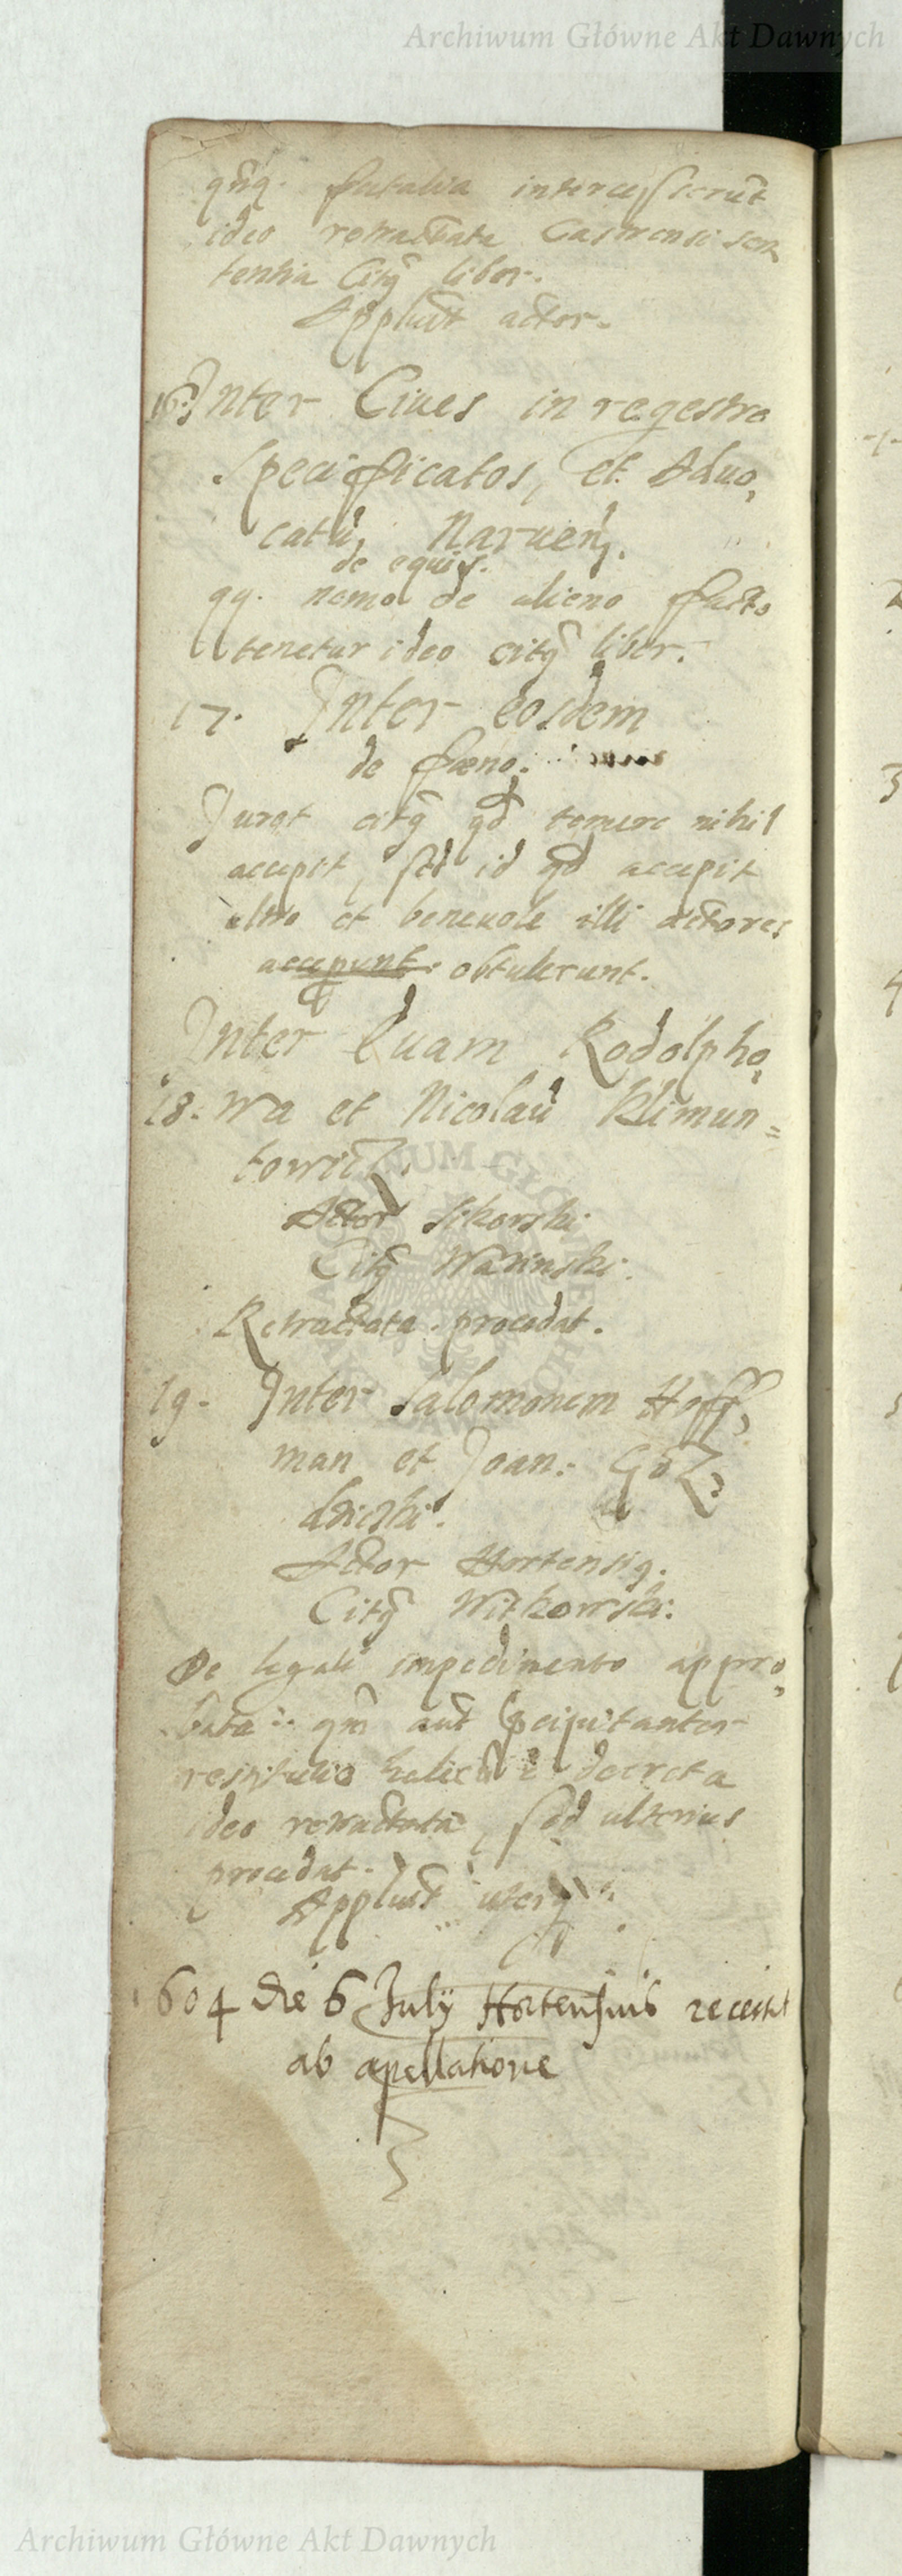 Archiwum Główne Akt Dawnych
qnq. fatalia intercesserut
ideo retractata Castrensi sen
tentia Citq liber.
Appluit actor.
16. Inter Ciues in regestro
Specifficatos, et Aduo,
catu, Naruen.
de equis.
qq. nemo de alieno facto
tenetur ideo citq liber.
17. Inter eosdem
de fœno.
Jurat citq qd temere nihil
accepit, sed id qd accepit
ultro et beneuole illi actores
accepunt. obtulerunt.
Inter Euam Rodolpho,
18. wa et Nicolau Klimun=
towicz.
Actor Sikorski
Citq Wasinski.
Retractata. procedat.
19. Inter Salomonem Hoff,
man et Joan: Goz,
dzicki.
Actor Hortensiq.
Citq Witkowski.
De legali impedimento appro,
bata: qm aut pcipitanter
restitutio e decreta
ideo retractata, sed ulterius
procedat.
Appluit uterq
1604 die 6 July Hortensius recessit
ab apellatione
Archiwum Główne Akt Dawnych